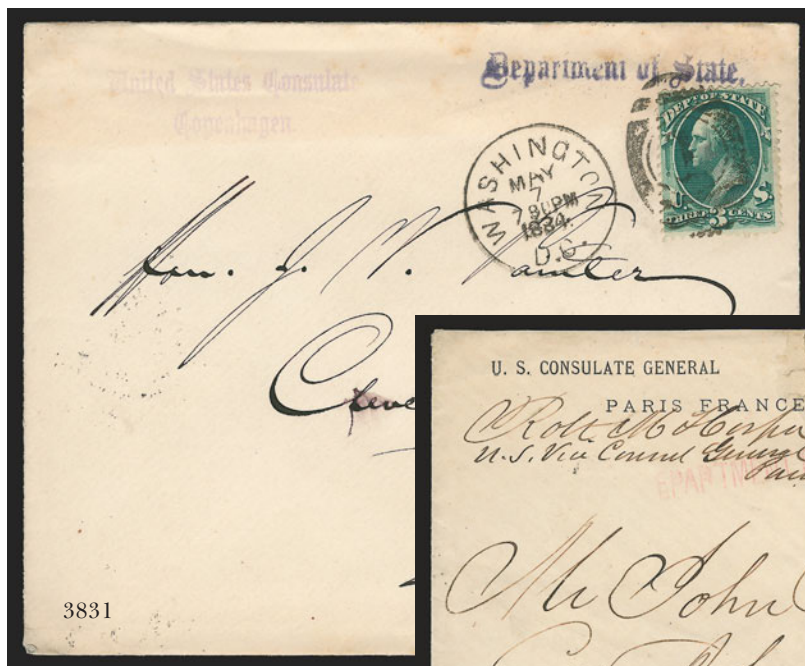 United States Consulate
Copenhagen.
Department of State.
DEPT. OF STATE
U. S.
THREE 3 CENTS
WASHINGTON
MAY
7
1884
D.C.
Hon. J. V. Painter
Cleve
3831
U. S. CONSULATE GENERAL
PARIS FRANCE
Robt. M. Hooper
U.S. Vice Consul General
EPARTMEN
Mr John